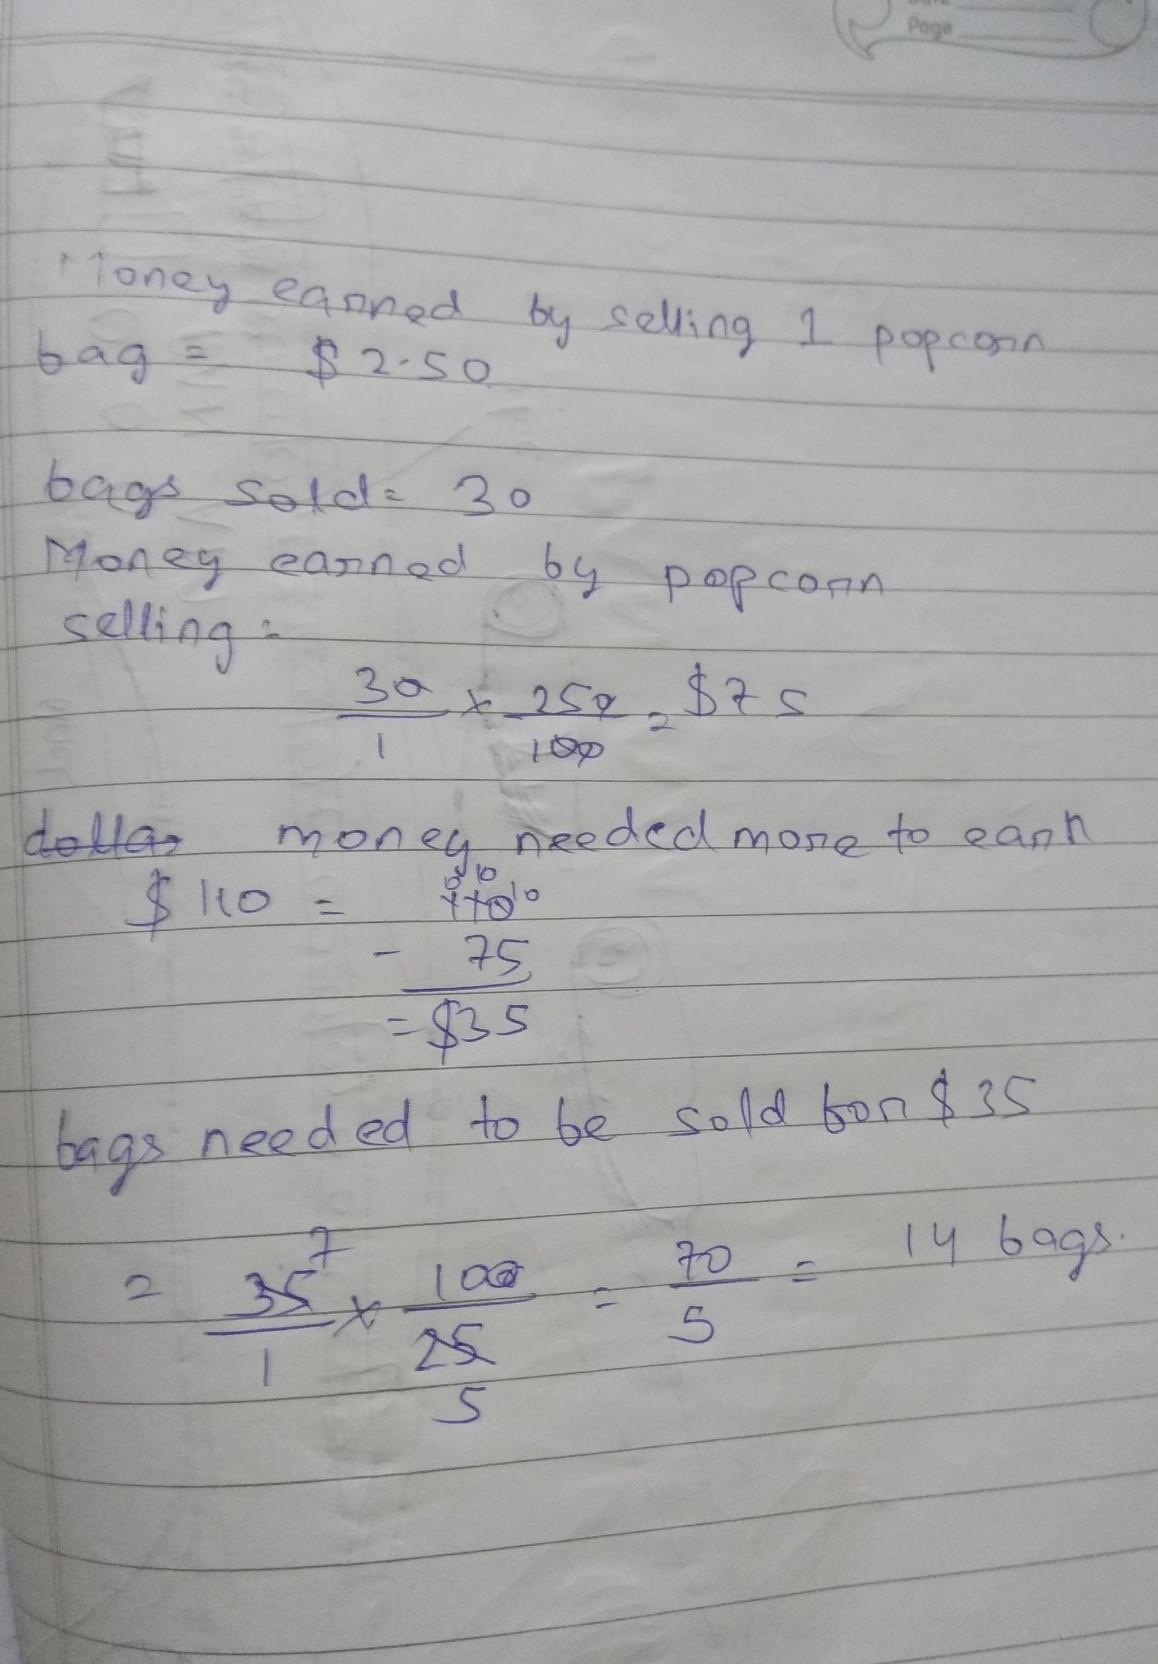 Page
Money earned by selling 1 popcorn
bag = $2.50
bags sold = 30
Money earned by popcorn
selling =
30/1 × 250/100 = $75
dollar money needed more to earn
$110 = 110
0 10 10
- 75
= $35
bags needed to be sold for $35
= 35/1 × 100/25 = 70/5 = 14 bags.
7
5